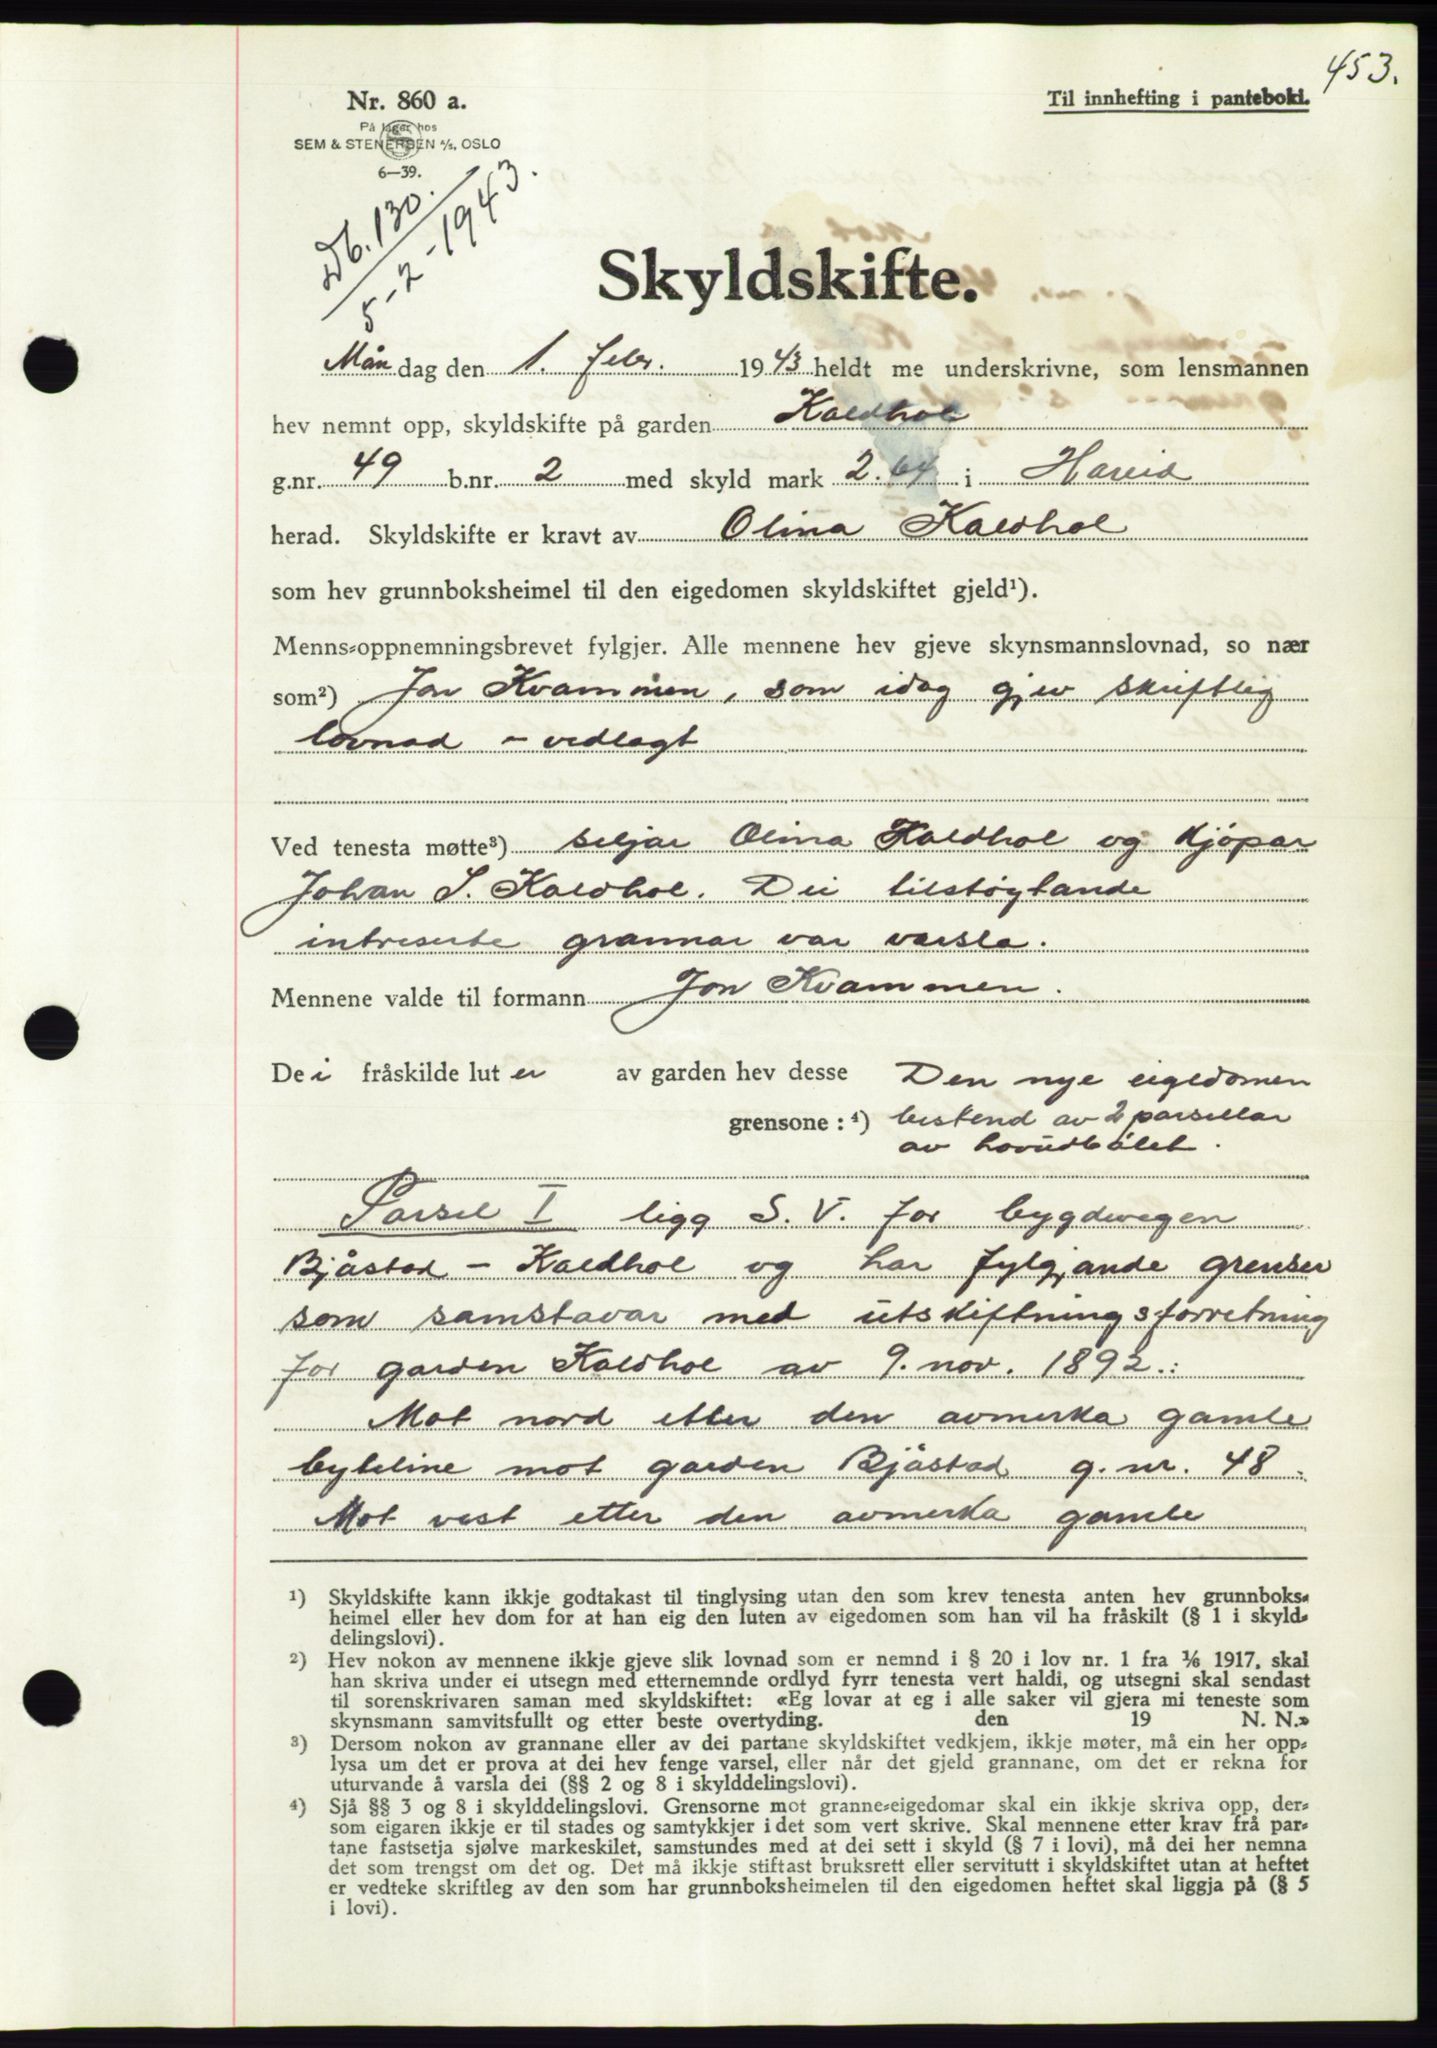 453.
Nr. 860 a.
Til innhefting i panteboki.
På lager hos
SEM & STENERSEN A/S, OSLO
6—39.
Db. 130.
5-2-1943.
Skyldskifte.
Mån dag den 1. febr. 1943 heldt me underskrivne, som lensmannen
hev nemnt opp, skyldskifte på garden Kaldhol
g.nr. 49 b.nr. 2 med skyld mark 2.64 i Hareid
herad. Skyldskifte er kravt av Olina Kaldhol
som hev grunnboksheimel til den eigedomen skyldskiftet gjeld¹).
Menns-oppnemningsbrevet fylgjer. Alle mennene hev gjeve skynsmannslovnad, so nær
som²) Jon Kvammen, som idag gjev skriftlig
lovnad - vedlagt
Ved tenesta møtte³) seljar Olina Kaldhol og kjöpar
Johan S. Kaldhol. Dei tilstøytande
intreserte grannar var varsla.
Mennene valde til formann Jon Kvammen.
De i fråskilde lut er av garden hev desse Den nye eigedomen
grensone : ⁴) bestend av 2 parsellar
av hovudbölet.
Parsel I ligg S. V. for bygdevegen
Bjåstad - Kaldhol og har fylgjande grenser
som samstavar med utskiftningsforretning
for garden Kaldhol av 9. nov. 1892.:
Mot nord etter den avmerka gamle
byteline mot garden Bjåstad g. nr. 48.
Mot vest etter den avmerka gamle
¹) Skyldskifte kann ikkje godtakast til tinglysing utan den som krev tenesta anten hev grunnboks-
heimel eller hev dom for at han eig den luten av eigedomen som han vil ha fråskilt (§ 1 i skyld-
delingslovi).
²) Hev nokon av mennene ikkje gjeve slik lovnad som er nemnd i § 20 i lov nr. 1 fra ¹/₆ 1917, skal
han skriva under ei utsegn med etternemnde ordlyd fyrr tenesta vert haldi, og utsegni skal sendast
til sorenskrivaren saman med skyldskiftet: «Eg lovar at eg i alle saker vil gjera mi teneste som
skynsmann samvitsfullt og etter beste overtyding. den 19 N. N.»
³) Dersom nokon av grannane eller av dei partane skyldskiftet vedkjem, ikkje møter, må ein her opp-
lysa um det er prova at dei hev fenge varsel, eller når det gjeld grannane, om det er rekna for
uturvande å varsla dei (§§ 2 og 8 i skylddelingslovi).
⁴) Sjå §§ 3 og 8 i skylddelingslovi. Grensorne mot granne-eigedomar skal ein ikkje skriva opp, der-
som eigaren ikkje er til stades og samtykkjer i det som vert skrive. Skal mennene etter krav frå par-
tane fastsetja sjølve markeskilet, samstundes med at dei sett i skyld (§ 7 i lovi), må dei her nemna
det som trengst om det og. Det må ikkje stiftast bruksrett eller servitutt i skyldskiftet utan at heftet
er vedteke skriftleg av den som har grunnboksheimelen til den eigedomen heftet skal liggja på (§ 5
i lovi).